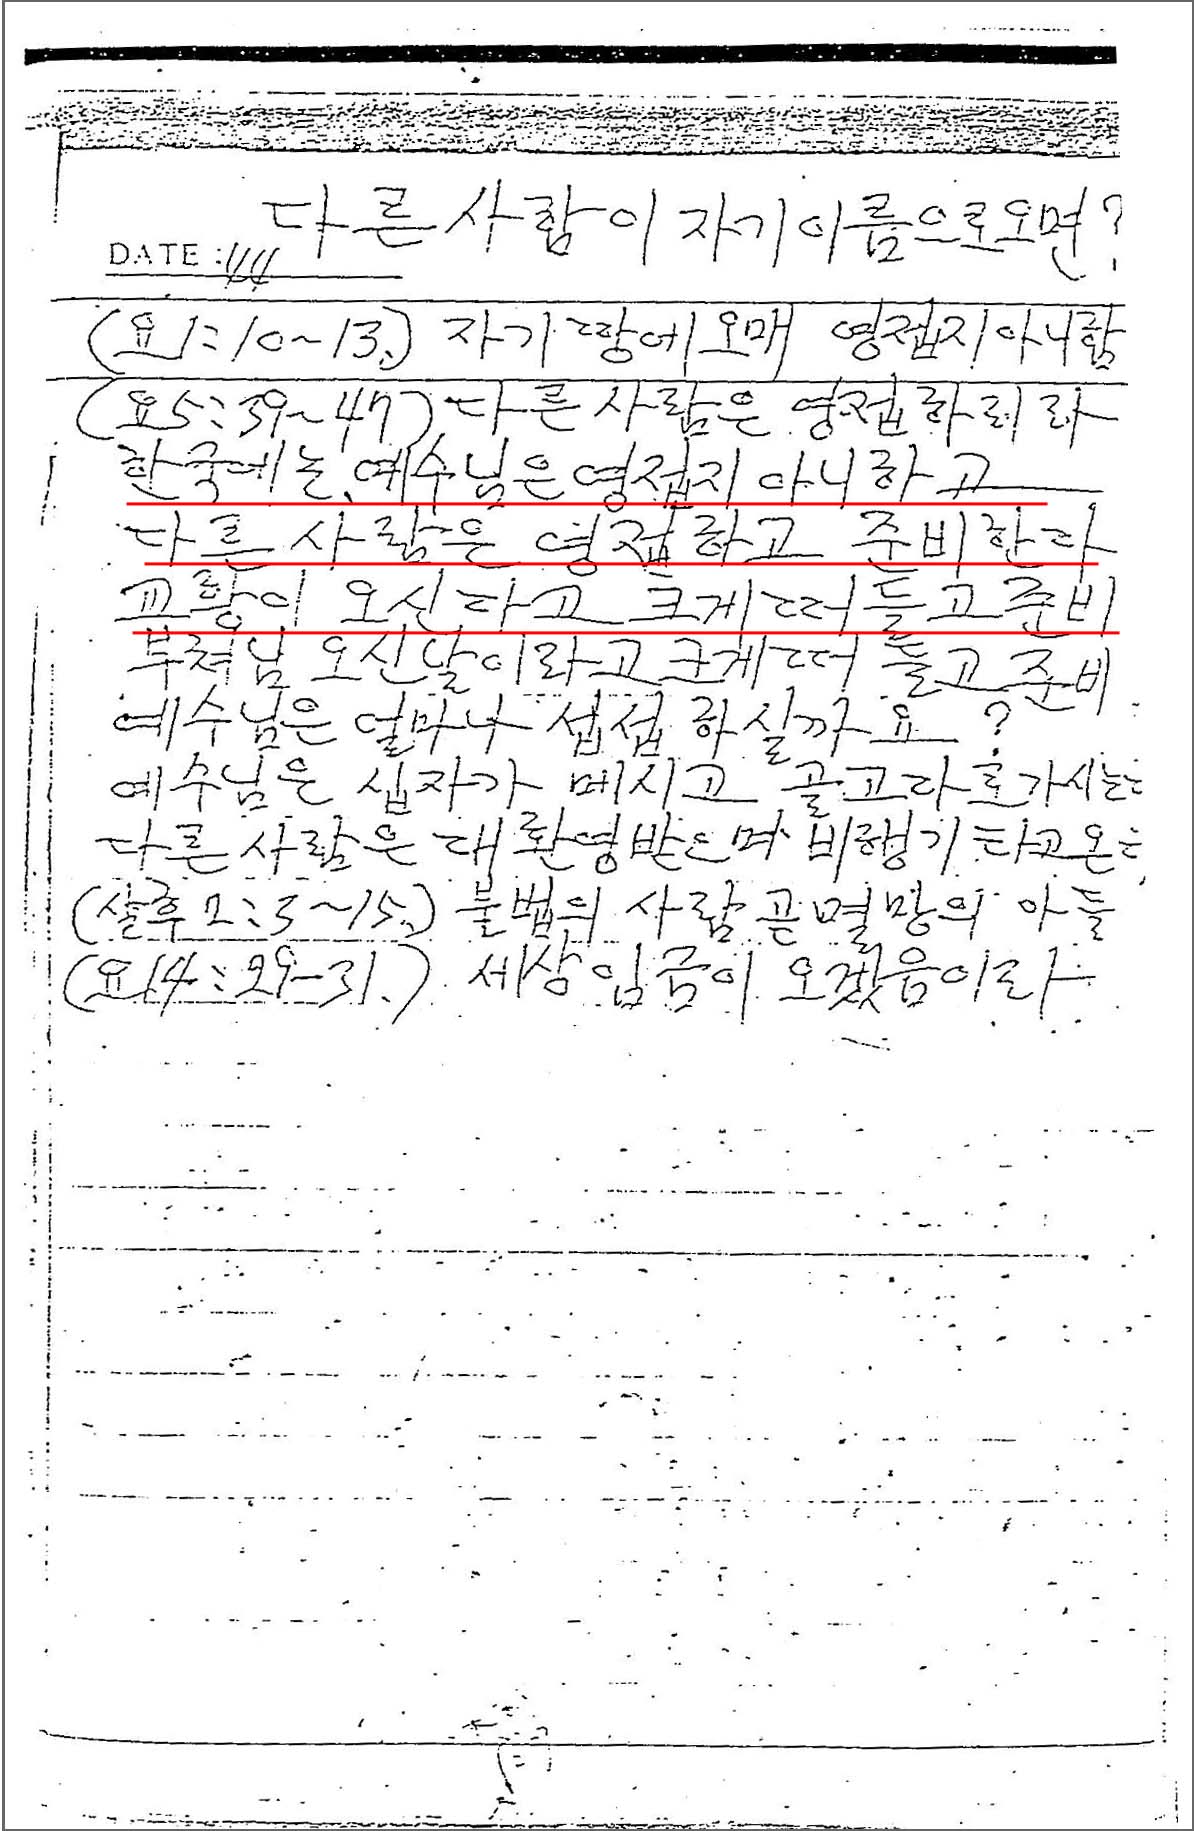 다른 사람이 자기이름으로오면?
DATE :
(요1:10~13.) 자기 땅에 오매 영접지아니함
(요5:39~47) 다른 사람은 영접하리라
한국에는 예수님은 영접지 아니하고
다른 사람은 영접하고 준비한다
교황이 오신다고 크게 떠들고 준비
부처님 오신날이라고 크게 떠들고 준비
예수님은 얼마나 섭섭 하실까요?
예수님은 십자가 메시고 골고다로가시는
다른 사람은 대환영받으며 비행기 타고온
(살후2:3~15.) 불법의 사람 곧 멸망의 아들
(요14:29-31.) 세상임금이 오겠음이라